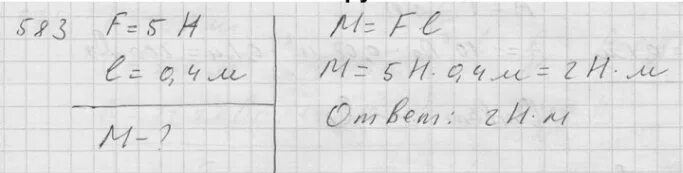 583 F = 5 Н
l = 0,4 м
М - ?
М = Fl
М = 5 Н · 0,4 м = 2 Н · м
Ответ: 2 Н · м